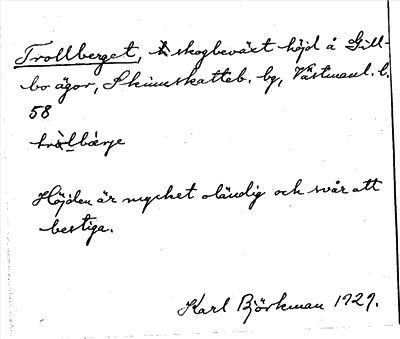 Trollberget, skogbeväxt höjd å Gill-
bo ägor, Skinnskatteb. bg, Västmanl. l.
58
Höjden är mycket oländig och svår att
bestiga.
Karl Björkman 1929.